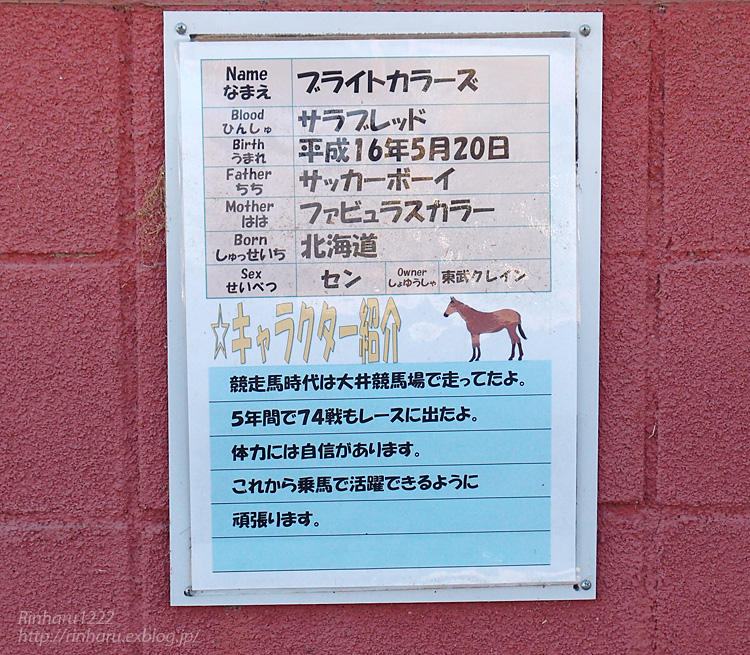 Name ブライトカラーズ
なまえ
Blood サラブレッド
ひんしゅ
Birth 平成16年5月20日
うまれ
Father サッカーボーイ
ちち
Mother ファビュラスカラー
はは
Born 北海道
しゅっせいち
Sex セン Owner 東武クレイン
せいべつ しょゆうしゃ
☆キャラクター紹介
競走馬時代は大井競馬場で走ってたよ。
5年間で74戦もレースに出たよ。
体力には自信があります。
これから乗馬で活躍できるように
頑張ります。
Rinharu1222
http://rinharu.exblog.jp/